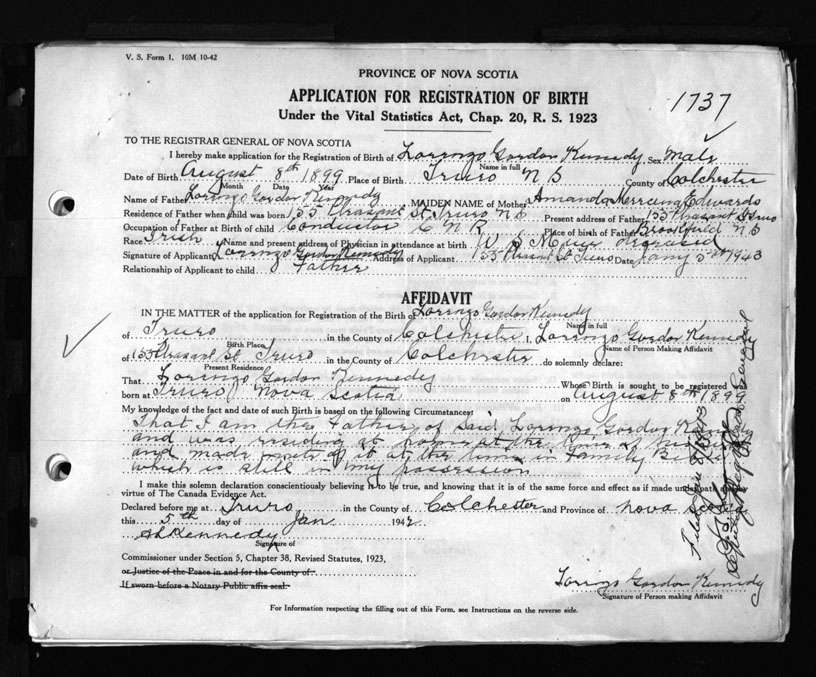 V. S. Form 1. 10M 10-42
PROVINCE OF NOVA SCOTIA
APPLICATION FOR REGISTRATION OF BIRTH
1737
Under the Vital Statistics Act, Chap. 20, R. S. 1923
TO THE REGISTRAR GENERAL OF NOVA SCOTIA
I hereby make application for the Registration of Birth of Lorenzo Gordon Kennedy Sex Male
Name in full
Date of Birth August 8th 1899 Place of Birth Truro N S County of Colchester
Month Date Year
Name of Father Lorenzo Gordon Kennedy MAIDEN NAME of Mother Amanda Edwards
Residence of Father when child was born 155 Pleasant St Truro N S Present address of Father 155 Pleasant St Truro
Occupation of Father at Birth of child Conductor C N R Place of birth of Father Brookfield N S
Race Irish Name and present address of Physician in attendance at birth W S Muir deceased
Signature of Applicant Lorenzo Gordon Kennedy Address of Applicant 155 Pleasant St Truro Date Jany 5th 1943
Relationship of Applicant to child Father
AFFIDAVIT
IN THE MATTER of the application for Registration of the Birth of Lorenzo Gordon Kennedy
Name in full
of Truro in the County of Colchester I, Lorenzo Gordon Kennedy
Birth Place Name of Person Making Affidavit
of 155 Pleasant St Truro in the County of Colchester do solemnly declare:
Present Residence
That Lorenzo Gordon Kennedy Whose Birth is sought to be registered
born at Truro Nova Scotia on August 8th 1899
My knowledge of the fact and date of such Birth is based on the following Circumstances:
That I am the Father of said Lorenzo Gordon Kennedy
and was residing at home at the time of his
and made note of it at the time in Family Bible
which is still in my possession
I make this solemn declaration conscientiously believing it to be true, and knowing that it is of the same force and effect as if made under oath and by
virtue of The Canada Evidence Act.
Declared before me at Truro in the County of Colchester and Province of Nova Scotia
this 5th day of Jan 1942
Kennedy
Signature of
Commissioner under Section 5, Chapter 38, Revised Statutes, 1923,
or Justice of the Peace in and for the County of
If sworn before a Notary Public affix seal.
Lorenzo Gordon Kennedy
Signature of Person making Affidavit
For Information respecting the filling out of this Form, see Instructions on the reverse side.